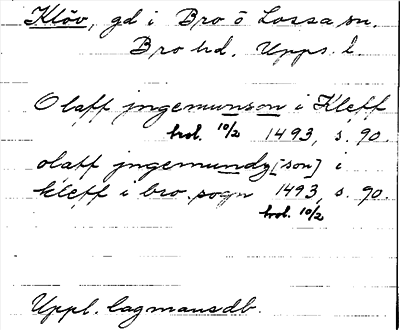 Klöv, gd i Bro o Lossa sn.
Bro hd. Upps. l.
Olaff jngemunson i Kleff
hol. 10/2 1493, s. 90.
olaff jngemundz[son] i
kleff i bro sogn 1493, s. 90.
hol. 10/2
Uppl. lagmansdb.